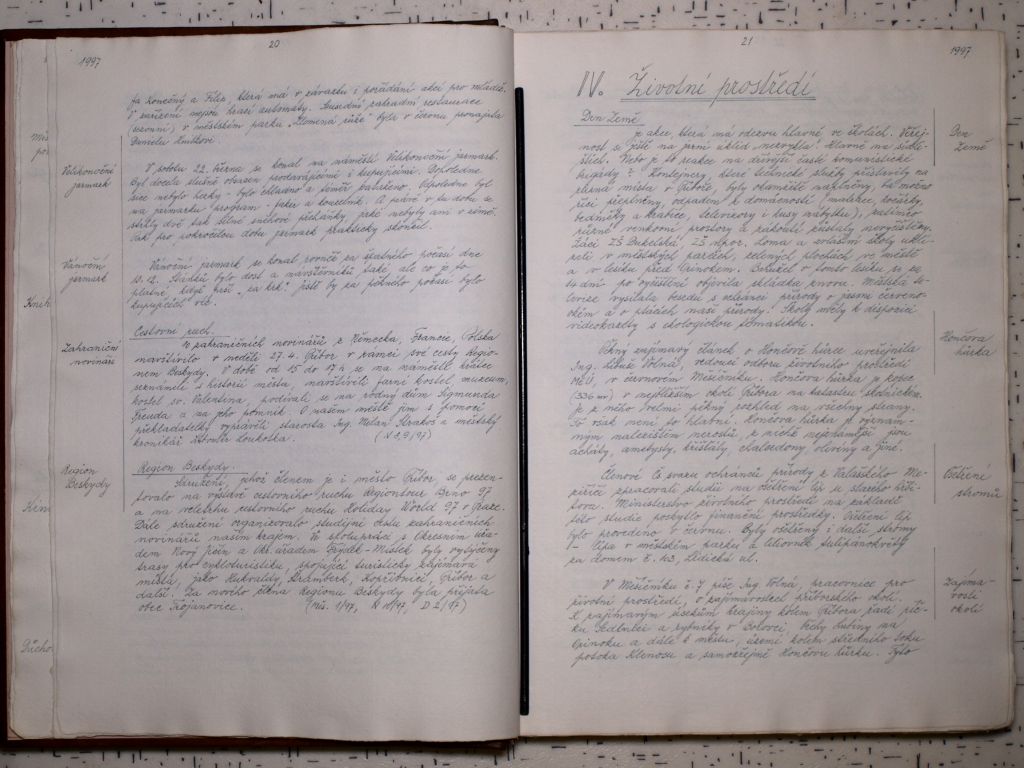 20
1997
fa Konečný a Filip, která má v závazku i pořádání akcí pro mládež.
V zařízení nejsou hrací automaty. Sousední zahradní restaurace
(sezonní) v městském parku „Zlomená růže" byla v červnu pronajata
Danielu
Velikonoční
jarmark
V sobotu 22. března se konal na náměstí Velikonoční jarmark.
Byl docela slušně obsazen prodávajícími i kupujícími. Dopoledne
sice nebylo hezky - bylo chladno a poměr zataženo. Odpoledne byl
na jarmarku program - fakír a kouzelník. A právě v tu dobu se
strhly dvě tak silné sněhové přeháňky, jaké nebyly ani v zimě.
Tak pro pokročilou dobu jarmark prakticky skončil.
Vánoční
jarmark
Vánoční jarmark se konal rovněž za špatného počasí dne
13. 12. Stánků bylo dost a návštěvníků také, ale co je to
platné, když prší „za krk" jistě by za pěkného počasí bylo
kupujících víc.
Cestovní ruch.
Zahraniční
novináři
zahraničních novinářů z Německa, Francie, Polska
navštívilo v neděli 27. 4. Příbor v rámci své cesty Regio-
nem Beskydy. V době od 15 do 17 h. se na náměstí krátce
seznámili s historií města, navštívili farní kostel, muzeum,
kostel sv. Valentina, podívali se na rodný dům Sigmunda
Freuda a na jeho pomník. O našem městě jim s pomocí
překladatelky vyprávěli starosta Ing. Milan Strakoš a městský
kronikář Loukotka.
Region
Beskydy
Region Beskydy.
Sdružení, jehož členem je i město Příbor se prezen-
tovalo na výstavě cestovního ruchu Regiontour Brno 97
a na veletrhu cestovního ruchu Holiday World 97 v Praze.
Dále sdružení organizovalo studijní cestu zahraničních
novinářů naším krajem. Ve spolupráci s Okresním úřa-
dem Nový Jičín a Okr. úřadem Frýdek-Místek byly vytyčeny
trasy pro cykloturistiku, spojující turisticky zajímavá
místa, jako Hukvaldy, Štramberk, Kopřivnici, Příbor a
další. Za nového člena Regionu Beskydy byla přijata
obec Trojanovice. (Měs. 1/97, R 10/97, D 2/97)
21
1997
IV. Životní prostředí
Den Země
Den
Země
je akce, která má odezvu hlavně ve školách. Veřej-
nost se ještě na první úklid nezvykla! Hlavně na sídli-
štích. Nebo je to reakce na dřívější časté komunistické
brigády? Kontejnery, které technické služby přistavily na
různá místa v Příboře, byly okamžitě naplněny, ba možno
říci přeplněny, odpadem z domácností (matrace, kočárky,
bedničky a krabice, televizory i kusy nábytku), zatímco
různé venkovní prostory a zákoutí zůstaly nevyčištěny.
Žáci ZŠ Dukelská, ZŠ npor. Loma a zvláštní školy ukli-
zeli v městských parcích, zelených plochách ve městě
a v lesíku před Orinokem. Bohužel v tomto lesíku se za
14 dní po vyčištění objevila skládka znovu. Městská te-
levize vysílala besedu s ochránci přírody o jasmu červeno-
okém a o ptácích naší přírody. Školy měly k dispozici
videokazety s ekologickou tématikou.
Hončova
hůrka
Pěkný zajímavý článek o Hončově hůrce uveřejnila
Ing. Libuše Volná, vedoucí odboru životního prostředí
MěÚ, v červnovém Měsíčníku. Hončova hůrka je kopec
(336 m) v nejbližším okolí Příbora na katastru skotnickém.
Je z něho velmi pěkný rozhled na všechny strany.
To však není to hlavní. Hončova hůrka je význam-
ným nalezištěm nerostů, z nichž nejznámější jsou
acháty, ametysty, křišťály, chalcedony, olivíny a jiné.
Ošetření
stromů
Členové Čs svazu ochránců přírody z Valašského Me-
ziříčí zpracovali studii na ošetření lip u starého hřbi-
tova. Ministerstvo životního prostředí na základě
této studie poskytlo finanční prostředky. Ošetření lip
bylo provedeno v červnu. Byly ošetřeny i další stromy
- lípa v městském parku a liliovník tulipánokvětý
za domem č. 43, Lidická ul.
Zajíma-
vosti
okolí
V Měsíčníku č. 7 píše Ing. Volná, pracovnice pro
životní prostředí, o zajímavostech příborského okolí.
K zajímavým úsekům krajiny kolem Příbora řadí říč-
ku Sedlnici a rybníky v Borovci, břehy Lubiny na
Orinoku a dále k městu, území kolem středního toku
potoka Klenosu a samozřejmě Hončovu hůrku. Tyto